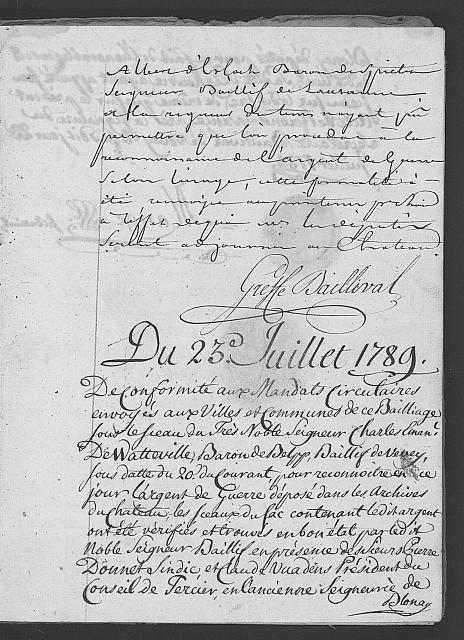 Albert d'Erlach Baron de Spietz
Seigneur Baillif de Lausanne
et la rigueur du tems n'ayant pû
permettre que l'on procédat à la
reconnoissance de l'argent de Guerre
Selon l'usage, cette formalité a
été renvoyée au printems prochain
à l'effet de quoi les députés
seront adjournés au Chateau.
Greffe Baillival
Du 23.e Juillet 1789.
De Conformité aux Mandats Circulaires
envoyés aux Villes et Communes de ce Bailliage
sous le sceau du Très Noble Seigneur Charles Eman.l
De Watteville, Baron de Belpp Baillif de Vevey
sous datte du 20. du Courant, pour reconnoitre en ce
jour l'argent de Guerre déposé dans les Archives
du Chateau, les sceaux du sac contenant led.t argent
ont été vérifiés et trouvés en bon état par led.t
Noble Seigneur Baillif en présence de Sieurs Pierre
Donnet Sindic et Claude Vuadens Président du
Conseil de Tercier, en l'ancienne Seigneurie de
Blonay